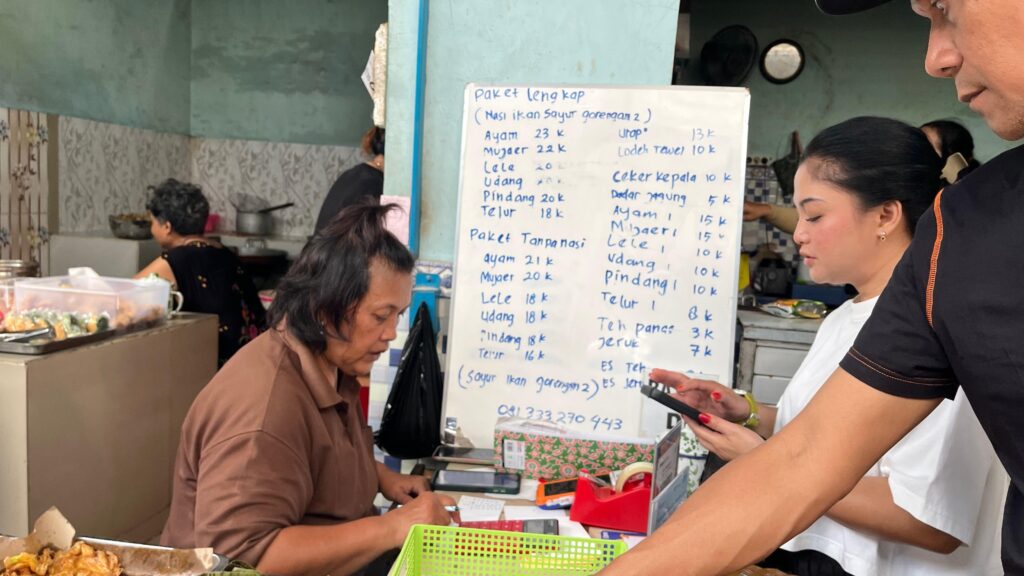 Paket Lengkap
(Nasi ikan Sayur gorengan 2)
Ayam 23 k
Mujaer 22 k
Lele 20
Udang
Pindang 20 k
Telur 18 k
Paket Tanpanasi
ayam 21 k
Mujaer 20 k
Lele 18 k
Udang 18 k
indang 18 k
Telur 16 k
(Sayur ikan gorengan 2)
Urap 13 k
Lodeh Tewel 10 k
Ceker kepala 10 k
Dadar jagung 5 k
Ayam 1 15 k
Mujaer 1 15
Lele 1 10 k
Udang 10 k
Pindang 1 10 k
Telur 1 8 k
Teh panas 3 k
Jeruk 7 k
ES Teh
ES Jer
081 333 270 443